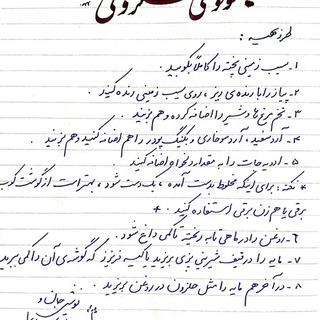 طرز تهیه :
۱- سیب زمینی پخته را کاملاً بکوبید.
۲- پیاز را با رنده ی ریز، روی سیب زمینی رنده کنید.
۳- تخم مرغ ها و شیر را اضافه کرده و هم بزنید.
۴- آرد سفید، آرد سوخاری و بکینگ پودر را هم اضافه کنید و هم بزنید.
۵- ادویه جات را به مقدار دلخواه اضافه کنید
* نکته: برای اینکه مخلوط بدست آمده، یکدست شود، بهتر است از گوشت کوب
برقی یا هم زن برقی استفاده کنید. *
۶- روغن را در ماهی تابه ریخته تا کمی داغ شود.
۷- مایه را در قیف شیرینی پزی بریزید یا کیسه فریزر که گوشه ی آن را کمی ببرید
۸- در آخر هم مایه را مثل حلزون در روغن بریزید.
نوش جان